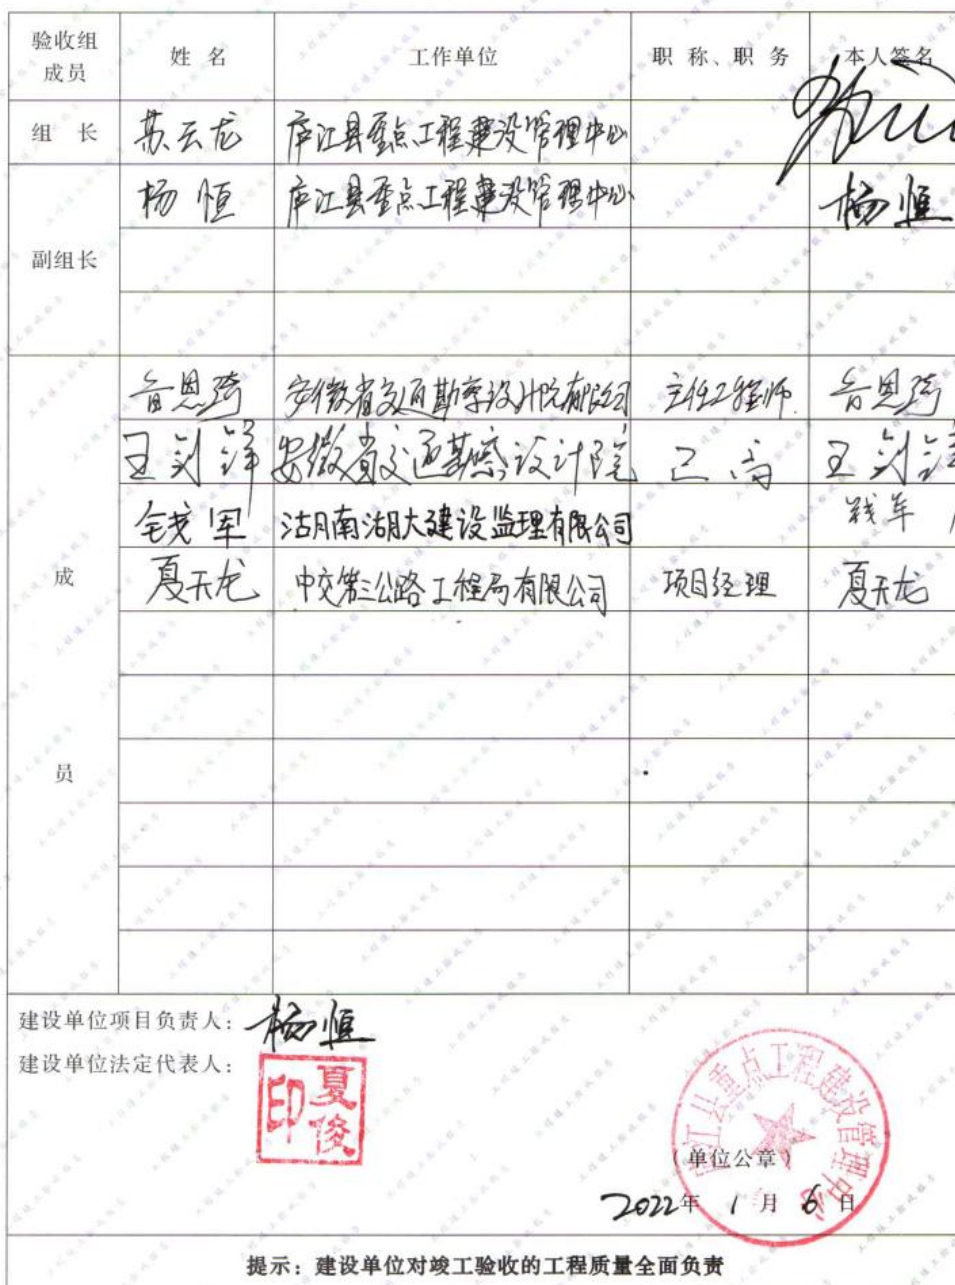 验收组成员 姓 名 工作单位 职 称、职 务 本人签名
组 长 苏云龙 庐江县重点工程建设管理中心
杨恒 庐江县重点工程建设管理中心 杨恒
副组长
鲁恩琦 安徽省交通勘察设计院有限公司 主任工程师 鲁恩琦
王剑锋 安徽省交通勘察设计院 正高 王剑锋
钱军 湖南湖大建设监理有限公司 钱军
夏天龙 中交第三公路工程局有限公司 项目经理 夏天龙
成
员
建设单位项目负责人：杨恒
建设单位法定代表人：
夏俊印
庐江县重点工程建设管理中心
（单位公章）
2022年 1月 6日
提示：建设单位对竣工验收的工程质量全面负责